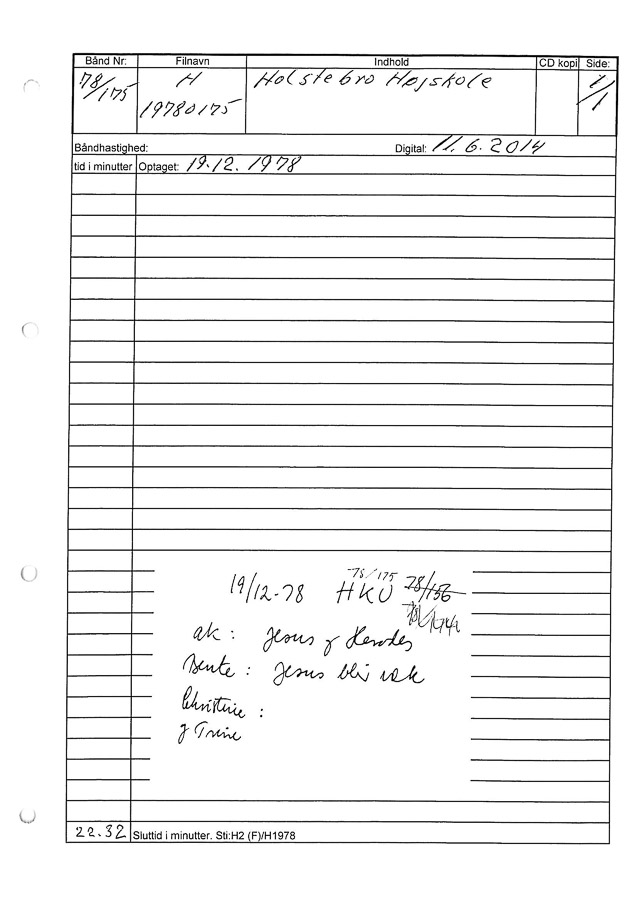 Bånd Nr: Filnavn Indhold CD kopi Side:
78/175 H Holstebro Højskole 1/1
19780175
Båndhastighed: Digital: 11.6.2014
tid i minutter Optaget: 19.12.1978
75/175
19/12-78 HKU 78/156
ak: Jesus og Herodes
Bente: Jesus blir
Christine:
og Trine
22.32 Sluttid i minutter. Sti:H2 (F)/H1978